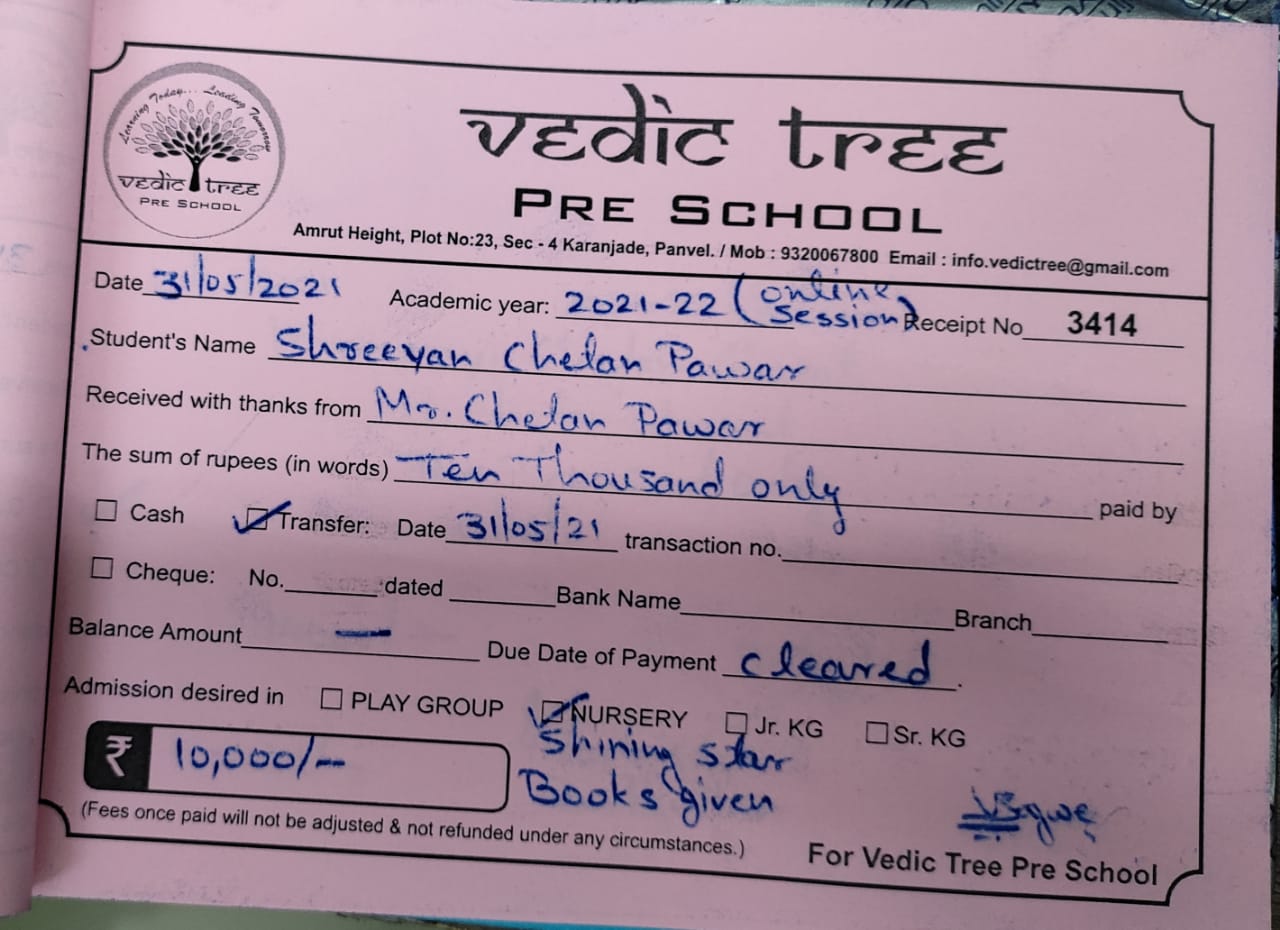 Learning Today... Leading Tomorrow
vedic tree
PRE SCHOOL
vedic tree
PRE SCHOOL
Amrut Height, Plot No:23, Sec - 4 Karanjade, Panvel. / Mob : 9320067800 Email : info.vedictree@gmail.com
Date 31/05/2021 Academic year: 2021-22 (online session) Receipt No 3414
Student's Name Shreeyan Chetan Pawar
Received with thanks from Mr. Chetan Pawar
The sum of rupees (in words) Ten Thousand only paid by
Cash Transfer: Date 31/05/21 transaction no.
Cheque: No. dated Bank Name Branch
Balance Amount — Due Date of Payment cleared.
Admission desired in PLAY GROUP NURSERY Jr. KG Sr. KG
₹ 10,000/- Shining star
Books given
(Fees once paid will not be adjusted & not refunded under any circumstances.)
For Vedic Tree Pre School